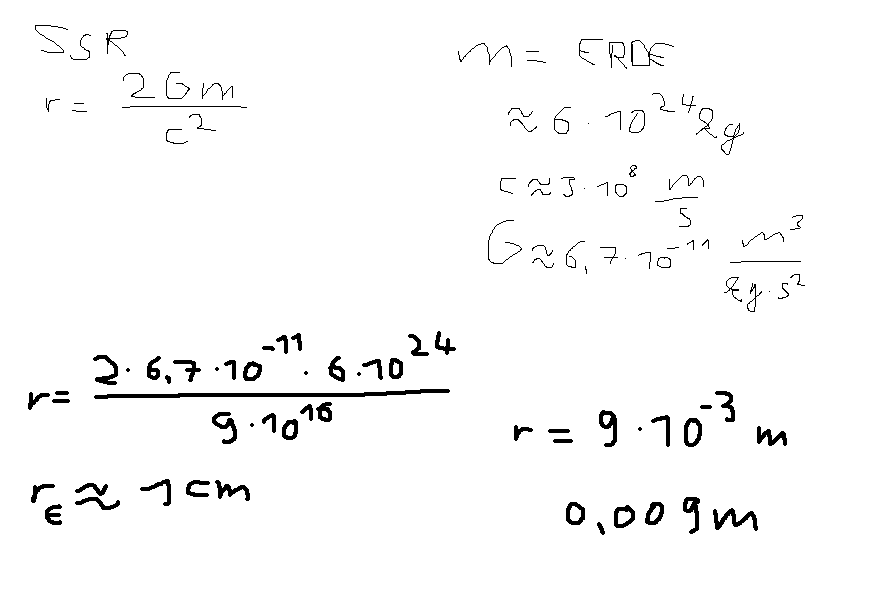 SSR
r = 2Gm / c²
m = ERDE
≈ 6 · 10²⁴ kg
c ≈ 3 · 10⁸ m/s
G ≈ 6,7 · 10⁻¹¹ m³ / kg · s²
r = 2 · 6,7 · 10⁻¹¹ · 6 · 10²⁴ / 9 · 10¹⁶
r = 9 · 10⁻³ m
r_E ≈ 1 cm
0,009 m